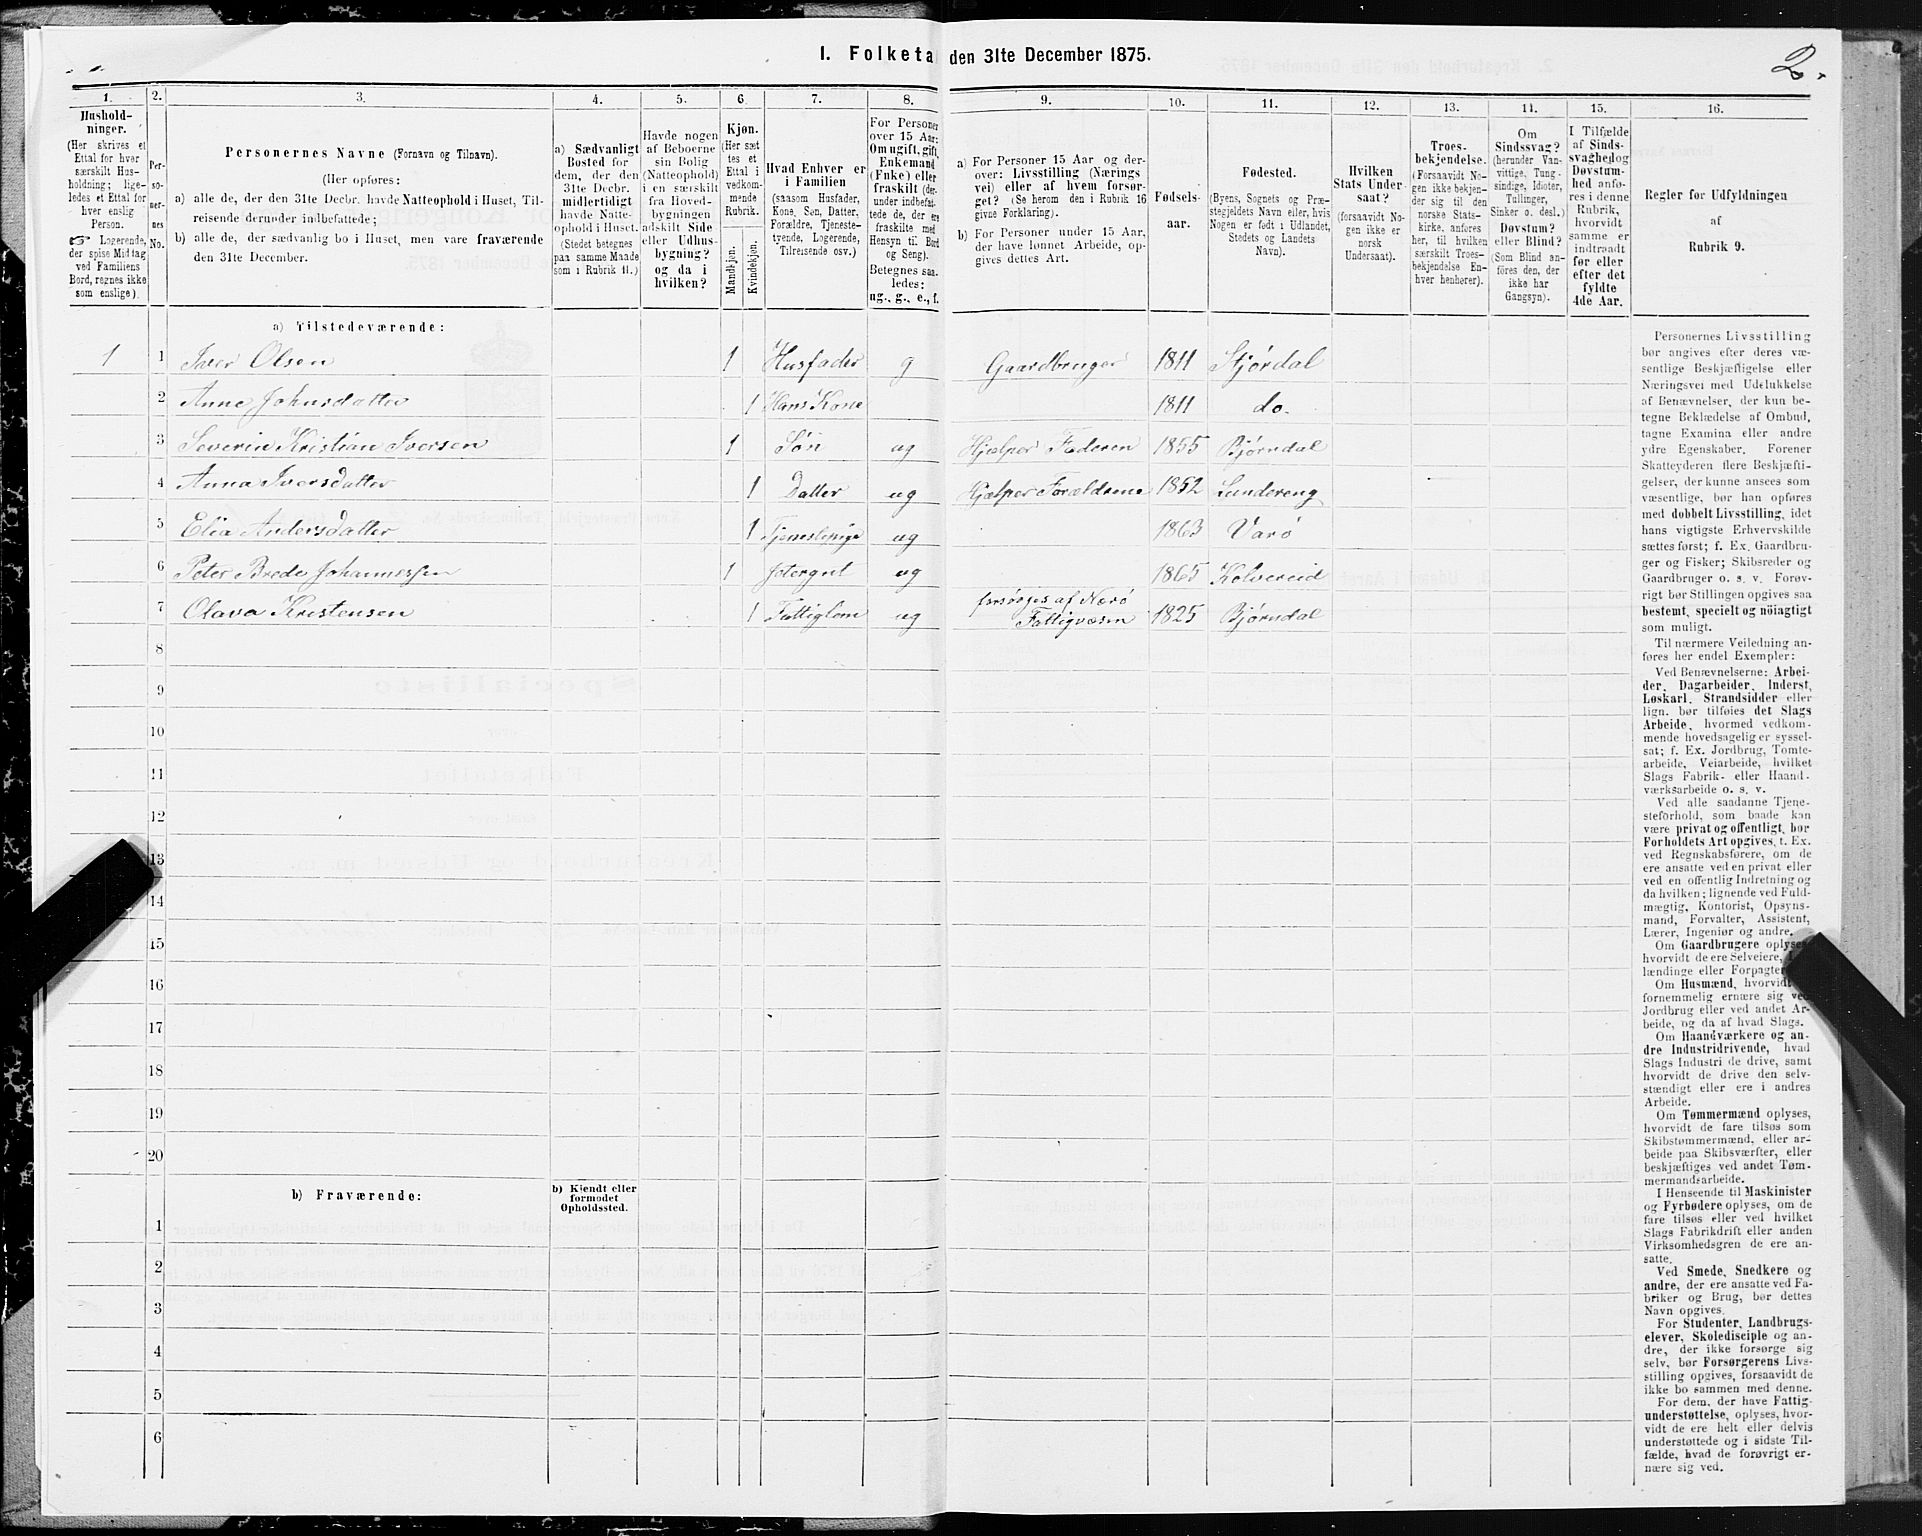 I. Folketa den 31te December 1875.
2.
1.
Hushold-
ninger.
(Her skrives et
Ettal for hver
særskilt Hus-
holdning; lige-
ledes et Ettal for
hver enslig
Person.
☞ Logerende,
der spise Middag
ved Familiens
Bord, regnes ikke
som enslige).
2.
Per-
so-
ner-
nes
No.
3.
Personernes Navne (Fornavn og Tilnavn).
(Her opføres:
a) alle de, der den 31te Decbr. havde Natteophold i Huset, Til-
reisende derunder indbefattede;
b) alle de, der sædvanlig bo i Huset, men vare fraværende
den 31te December.
4.
a) Sædvanligt
Bosted for
dem, der den
31te Decbr.
midlertidigt
havde Natte-
ophold i Huset.
(Stedet betegnes
paa samme Maade
som i Rubrik 11.)
5.
Havde nogen
af Beboerne
sin Bolig
(Natteophold)
i en særskilt
fra Hoved-
bygningen
adskilt Side
eller Udhus-
bygning?
og da i
hvilken?
6.
Kjøn.
(Her sæt
tes et
Ettal i
vedkom-
mende
Rubrik.
Mandkjøn.
Kvindekjøn.
7.
Hvad Enhver er
i Familien
(saasom Husfader,
Kone, Søn, Datter,
Forældre, Tjeneste-
tyende, Logerende,
Tilreisende osv.)
8.
For Personer
over 15 Aar:
Om ugift, gift,
Enkemand
(Enke) eller
fraskilt (der-
under indbefat-
tede de, der ere
fraskilte med
Hensyn til Bord
og Seng).
Betegnes saa-
ledes:
ug., g., e., f.
9.
a) For Personer 15 Aar og der-
over: Livsstilling (Nærings
vei) eller af hvem forsør-
get? (Se herom den i Rubrik 16
givne Forklaring).
b) For Personer under 15 Aar,
der have lønnet Arbeide, op-
gives dettes Art.
10.
Fødsels-
aar.
11.
Fødested.
(Byens, Sognets og Præ-
stegjeldets Navn eller, hvis
Nogen er født i Udlandet,
Stedets og Landets
Navn).
12.
Hvilken
Stats Under-
saat?
(forsaavidt No-
gen ikke er
norsk
Undersaat).
13.
Troes-
bekjendelse.
(Forsaavidt No-
gen ikke bekjen-
der sig til den
norske Stats-
kirke, anføres
her, til hvilken
særskilt Troes-
bekjendelse En-
hver henhører).
14.
Om
Sindssvag?
(herunder Van-
vittige, Tung-
sindige, Idioter,
Tullinger,
Sinker o. desl.)
Døvstum?
eller Blind?
(Som Blind an-
føres den, der
ikke har
Gangsyn).
15.
I Tilfælde
af Sinds-
svaghedog
Døvstum-
hed anfø-
res i denne
Rubrik,
hvorvidt
samme er
indtraadt
før eller
efter det
fyldte
4de Aar.
16.
Regler for Udfyldningen
af
Rubrik 9.
a) Tilstedeværende:
1 1 Iver Olsen 1 Husfader g Gaardbruger 1811 Stjørdal
2 Anne Johnsdatter 1 Hans Kone 1811 do.
3 Severin Kristian Iversen 1 Søn ug Hjælper Faderen 1855 Bjørndal
4 Anna Iversdatter 1 Datter ug Hjælper Forældrene 1852 Lundereng
5 Elia Andersdatter 1 Tjenestepige ug 1863 Varø
6 Peter Brede Johannessen 1 Jetergut ug 1865 Kolvereid
7 Olava Kristensen 1 Fattiglem ug forsørges af Nærø Fattigvæsen 1825 Bjørndal
8
9
10
11
12
13
14
15
16
17
18
19
20
b) Fraværende:
b) Kjendt eller
formodet
Opholdssted.
1
2
3
4
5
6
Personernes Livsstilling
bør angives efter deres væ-
sentlige Beskjæftigelse eller
Næringsvei med Udelukkelse
af Benævnelser, der kun be-
tegne Beklædelse af Ombud,
tagne Examina eller andre
ydre Egenskaber. Forener
Skatteyderen flere Beskjæfti-
gelser, der kunne ansees som
væsentlige, bør han opføres
med dobbelt Livsstilling, idet
hans vigtigste Erhvervskilde
sættes først; f. Ex. Gaardbru-
ger og Fisker; Skibsreder og
Gaardbruger o. s. v. Forøv-
rigt bør Stillingen opgives saa
bestemt, specielt og nöiagtigt
som muligt.
Til nærmere Veiledning an-
føres her endel Exempler:
Ved Benævnelserne: Arbei-
der, Dagarbeider, Inderst,
Løskarl, Strandsidder eller
lign. bør tilføies det Slags
Arbeide, hvormed vedkom-
mende hovedsagelig er syssel-
sat; f. Ex. Jordbrug, Tomte-
arbeide, Veiarbeide, hvilket
Slags Fabrik- eller Haand-
værksarbeide o. s. v.
Ved alle saadanne Tjene-
steforhold, som baade kan
være privat og offentligt, bør
Forholdets Art opgives, t. Ex.
ved Regnskabsførere, om de
ere ansatte ved en privat eller
ved en offentlig Indretning og
da hvilken; lignende ved Fuld-
mægtig, Kontorist, Opsyns-
mand, Forvalter, Assistent,
Lærer, Ingeniør og andre.
Om Gaardbrugere oplyses,
hvorvidt de ere Selveiere,
lændinge eller Forpagtere
Om Husmænd, hvorvidt
fornemmelig ernære sig ved
Jordbrug eller ved andet Ar-
beide, og da af hvad Slags.
Om Haandværkere og an-
dre Industridrivende, hvad
Slags Industri de drive, samt
hvorvidt de drive den selv-
stændigt eller ere i andres
Arbeide.
Om Tømmermænd oplyses,
hvorvidt de fare tilsøs som
Skibstømmermænd, eller ar-
beide paa Skibsværfter, eller
beskjæftiges ved andet Tøm-
mermandsarbeide.
I Henseende til Maskinister
og Fyrbødere oplyses, om de
fare tilsøs eller ved hvilket
Slags Fabrikdrift eller anden
Virksomhedsgren de ere an-
satte.
Ved Smede, Snedkere og
andre, der ere ansatte ved Fa-
briker og Brug, bør dettes
Navn opgives.
For Studenter, Landbrugs-
elever, Skoledisciple og an-
dre, der ikke forsørge sig
selv, bør Forsørgerens Livs-
stilling opgives, forsaavidt de
ikke bo sammen med denne.
For dem, der have Fattig-
understøttelse, oplyses, hvor-
vidt de ere helt eller delvis
understøttede og i sidste Til-
fælde, hvad de forøvrigt er-
nære sig ved.